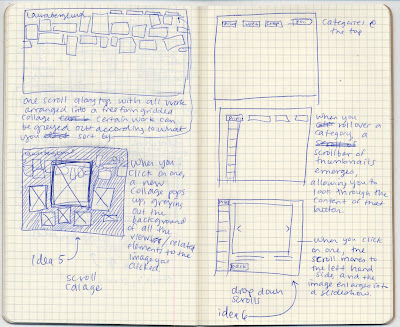 one scroll along top with all work
arranged into a free form gridded
collage. certain work can
be greyed out according to what
you sort by
When you
click on one,
a new
collage pops
up, greying
out the
background
of all the
related
elements to the
image you
clicked
idea 5
scroll
calage
Categories @
the top
when you
rollover a
category, a
scrollbar of
thumbnails
emerges,
allowing you to
look through the
content of that
section.
When you click
on one, the
scroll moves to
the left hand
side and the
image enlarges into
a slideshow.
drop down
scrolls
idea 6